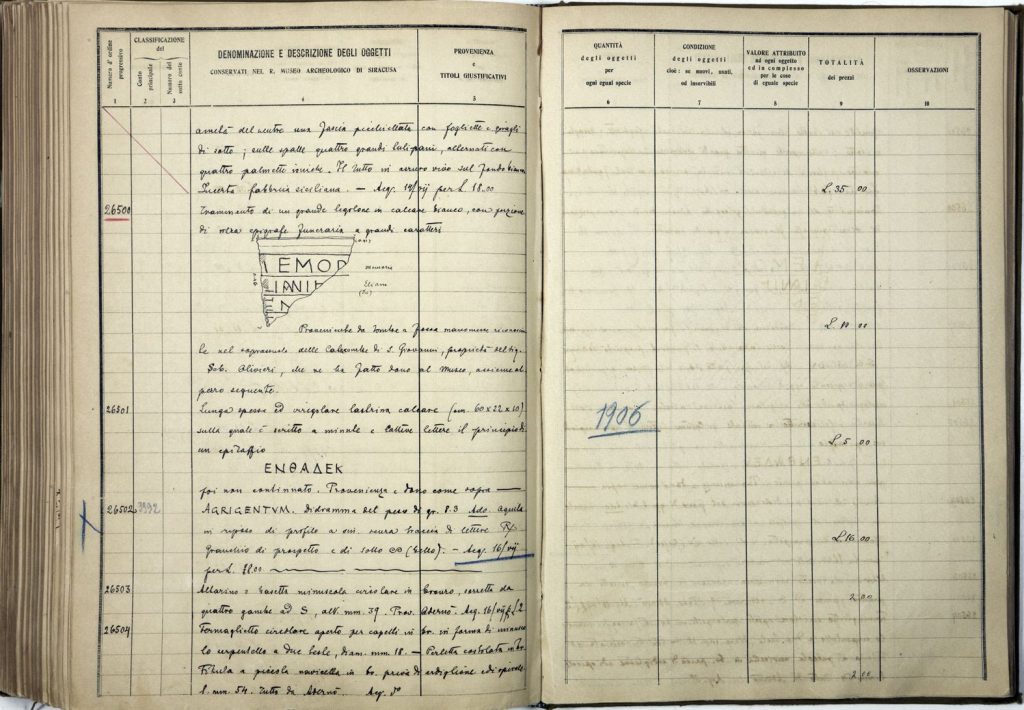 Numero d'ordine progressivo
CLASSIFICAZIONE
del
Conto principale
Numero del sotto conto
DENOMINAZIONE E DESCRIZIONE DEGLI OGGETTI
CONSERVATI NEL R. MUSEO ARCHEOLOGICO DI SIRACUSA
PROVENIENZA
e
TITOLI GIUSTIFICATIVI
1 2 3 4 5
QUANTITÀ
degli oggetti
per
ogni egual specie
CONDIZIONE
degli oggetti
cioè: se nuovi, usati,
od inservibili
VALORE ATTRIBUITO
ad ogni oggetto
ed in complesso
per le cose
di eguale specie
TOTALITÀ
dei prezzi
OSSERVAZIONI
6 7 8 9 10
a metà del ventre una fascia picchiettata con fogliette e
di sotto; sulle spalle quattro grandi tulipani, alternati con
quattro palmette Il tutto in sul fondo bianco
Incerta fabbrica siciliana. — Acq. per L. 18.00
L. 35 00
26500
Frammento di un grande in calcare bianco, con porzione
di epigrafe funeraria a grandi caratteri
EMOR
IANIE
IN
Memoria
Proveniente da tombe a fossa
le nel soprasuolo delle Catacombe di S. Giovanni, proprietà del Sig.
Olivieri, che ne ha fatto dono al Museo, assieme al
pezzo seguente.
26501
Lunga spessa ed irregolare lastrina calcare (cm. 60 x 22 x 10)
sulla quale è scritto a minute e cattive lettere il principio di
un epitaffio
ΕΝΘΑΔΕΚ
poi non continuato. Provenienza e dono come sopra
1906
L. 5 00
26502
AGRIGENTVM. Didramma del peso di gr. 8.3 aquila
in riposo di profilo a senza traccia di lettere
Granchio di prospetto e di sotto (Gello). — Acq. 16/VII
per L.
L. 16 00
26503
Altarino o circolare in bronzo, sorretta da
quattro gambe ad S, alt. mm. 39. Prov. Adernò. Acq. 16/VII
2.00
26504
Fermaglietto circolare aperto per capelli in br. in forma di
lo serpentello a due teste, diam. mm. 18 — Perletta costolata in br.
Fibula a piccola navicella in br. priva di ardiglione e di
l. mm. 54. Tutto da Adernò. Acq.
2.00